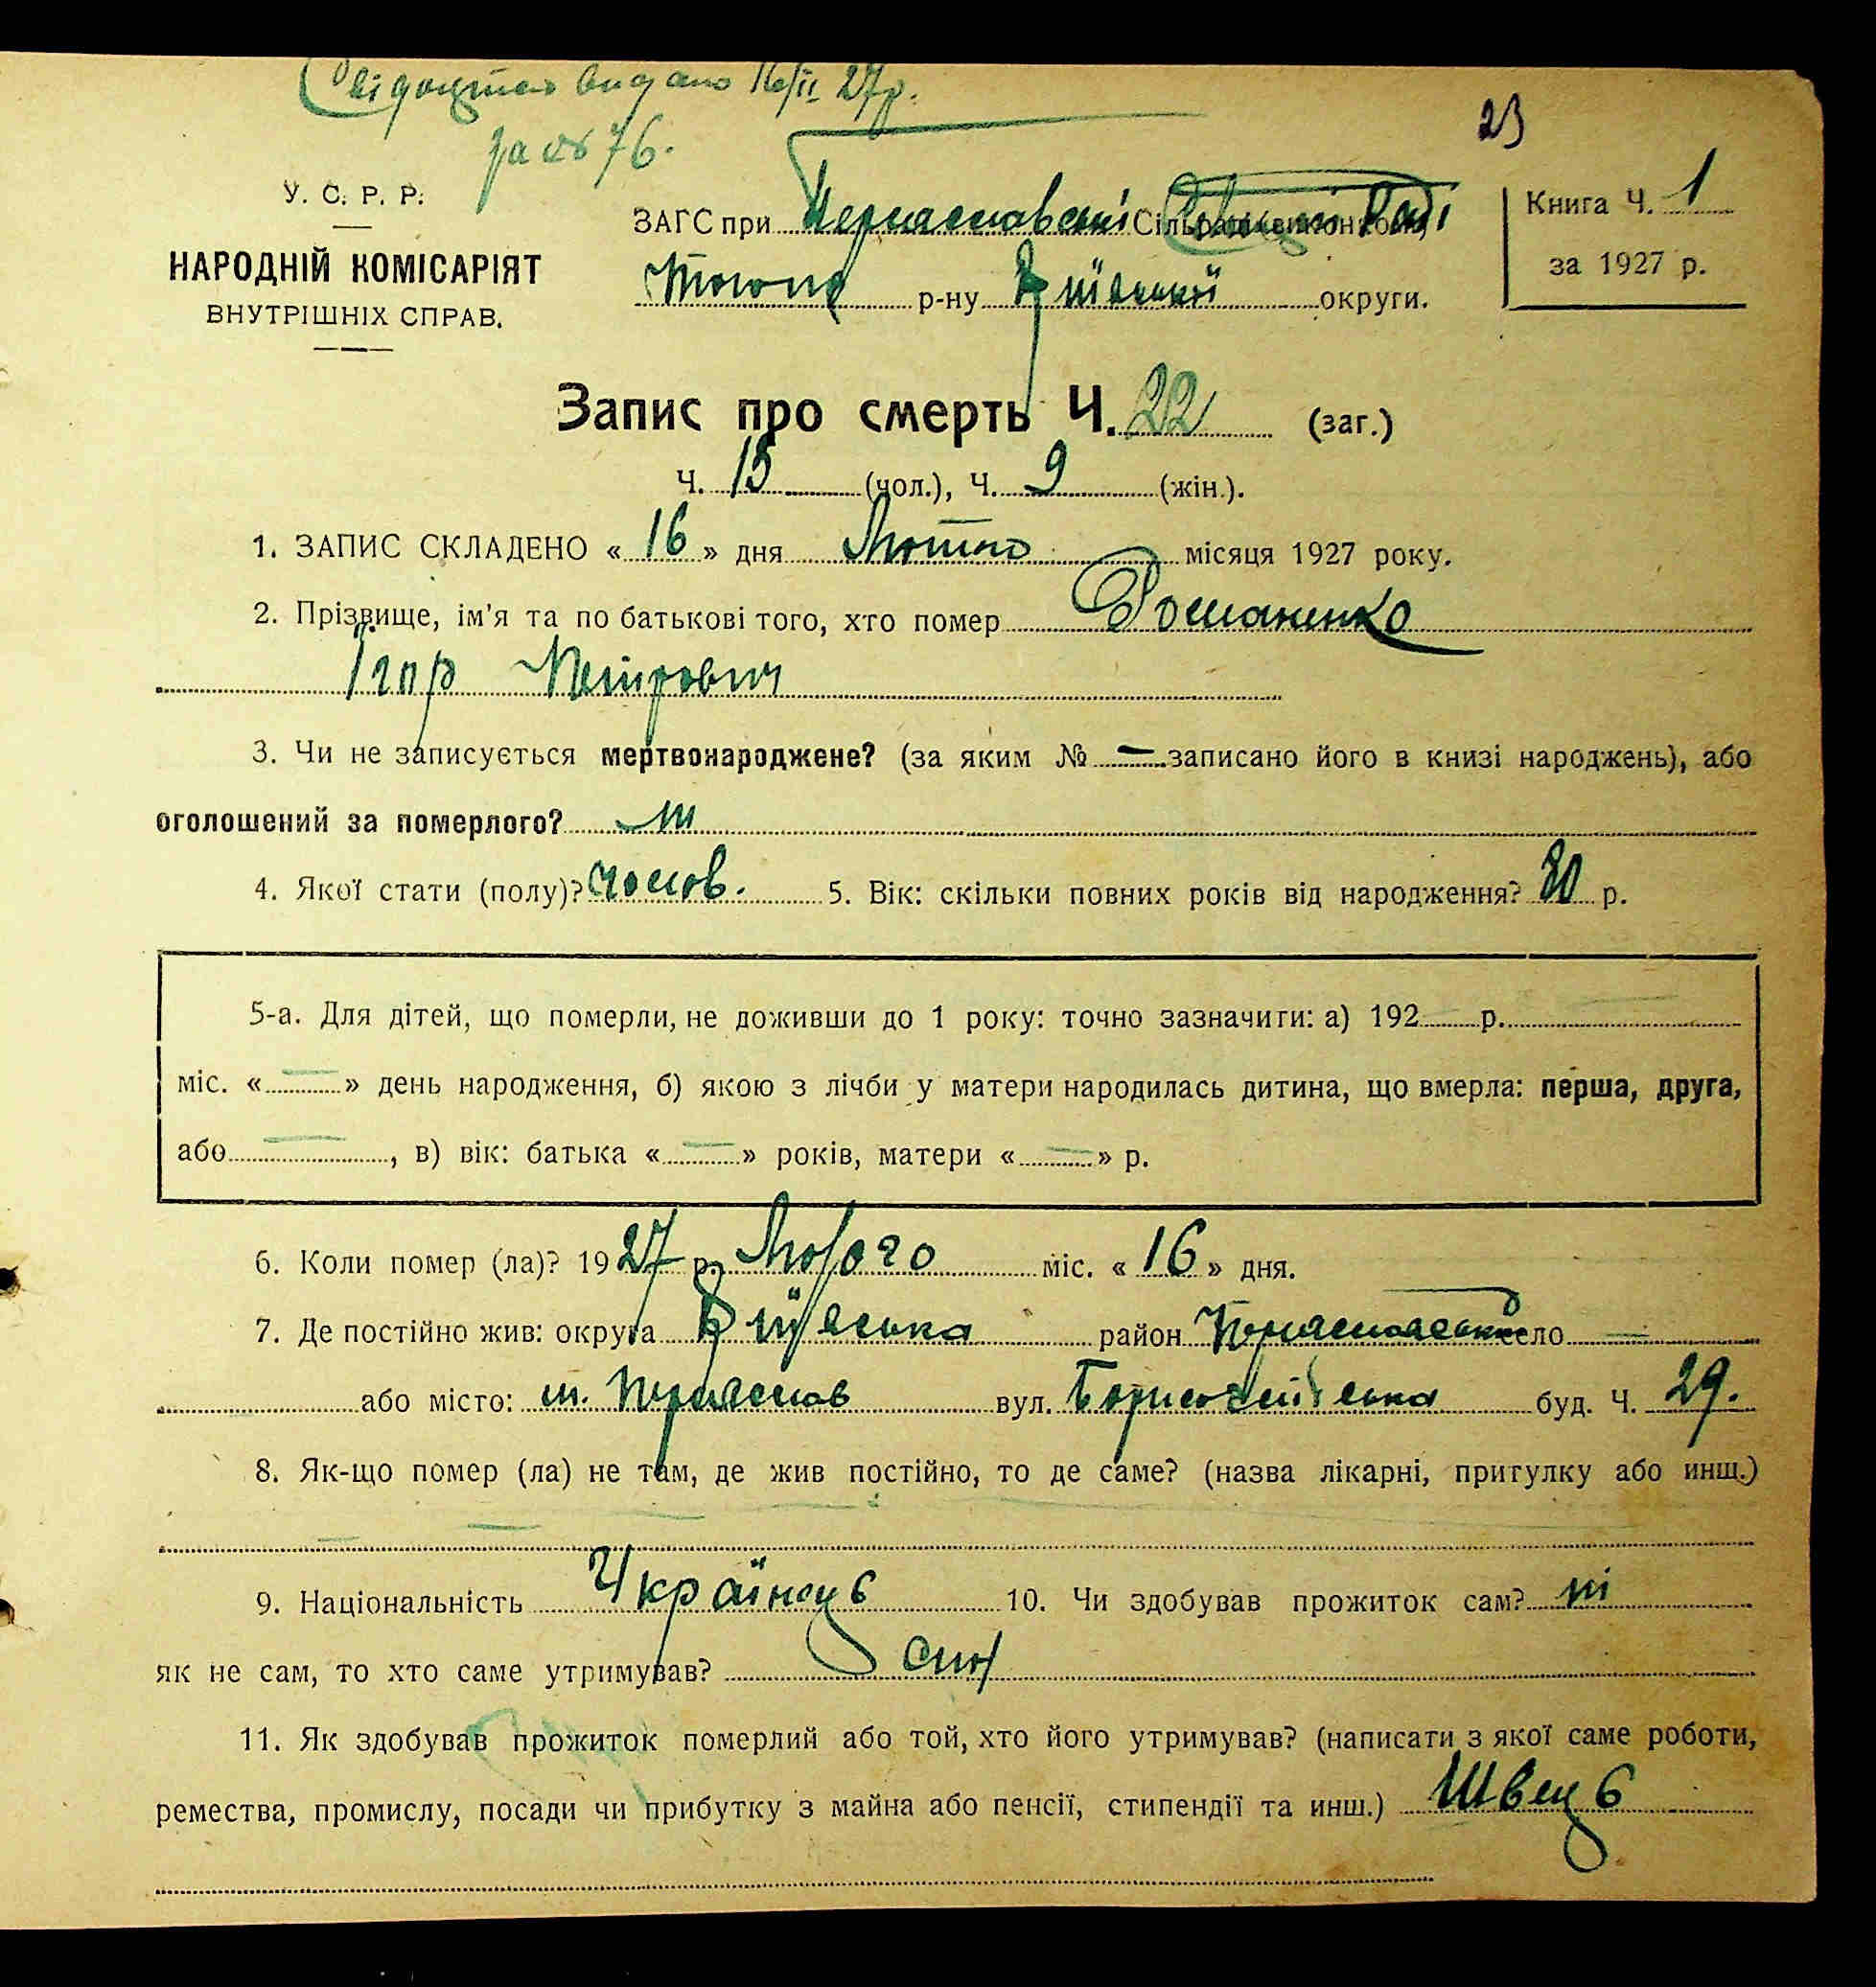 Свідоцтво видано 16/II 27р.
за № 76.
23
У. С. Р. Р.
НАРОДНІЙ КОМІСАРІЯТ
ВНУТРІШНІХ СПРАВ.
ЗАГС при Переяславській Сільраді (виконкомі) Раді
р-ну округи.
Книга Ч. 1
за 1927 р.
Запис про смерть Ч. 22 (заг.)
Ч. 13 (чол.), Ч. 9 (жін.).
1. ЗАПИС СКЛАДЕНО « 16 » дня Лютого місяця 1927 року.
2. Прізвище, ім'я та по батькові того, хто помер Романенко
Ігор Петрович
3. Чи не записується мертвонароджене? (за яким № — записано його в книзі народжень), або
оголошений за померлого? ні
4. Якої стати (полу)? чолов. 5. Вік: скільки повних років від народження? 80 р.
5-а. Для дітей, що померли, не доживши до 1 року: точно зазначити: а) 192 р. —
міс. « — » день народження, б) якою з лічби у матери народилась дитина, що вмерла: перша, друга,
або — , в) вік: батька « — » років, матери « — » р.
6. Коли помер (ла)? 1927 р. Лютого міс. « 16 » дня.
7. Де постійно жив: округа район Переяславськ село —
або місто: м. Переяслав вул. Борисоглібська буд. Ч. 29.
8. Як-що помер (ла) не там, де жив постійно, то де саме? (назва лікарні, притулку або инш.)
9. Національність Українець 10. Чи здобував прожиток сам? ні
як не сам, то хто саме утримував? син
11. Як здобував прожиток померлий або той, хто його утримував? (написати з якої саме роботи,
ремества, промислу, посади чи прибутку з майна або пенсії, стипендії та инш.) Швець